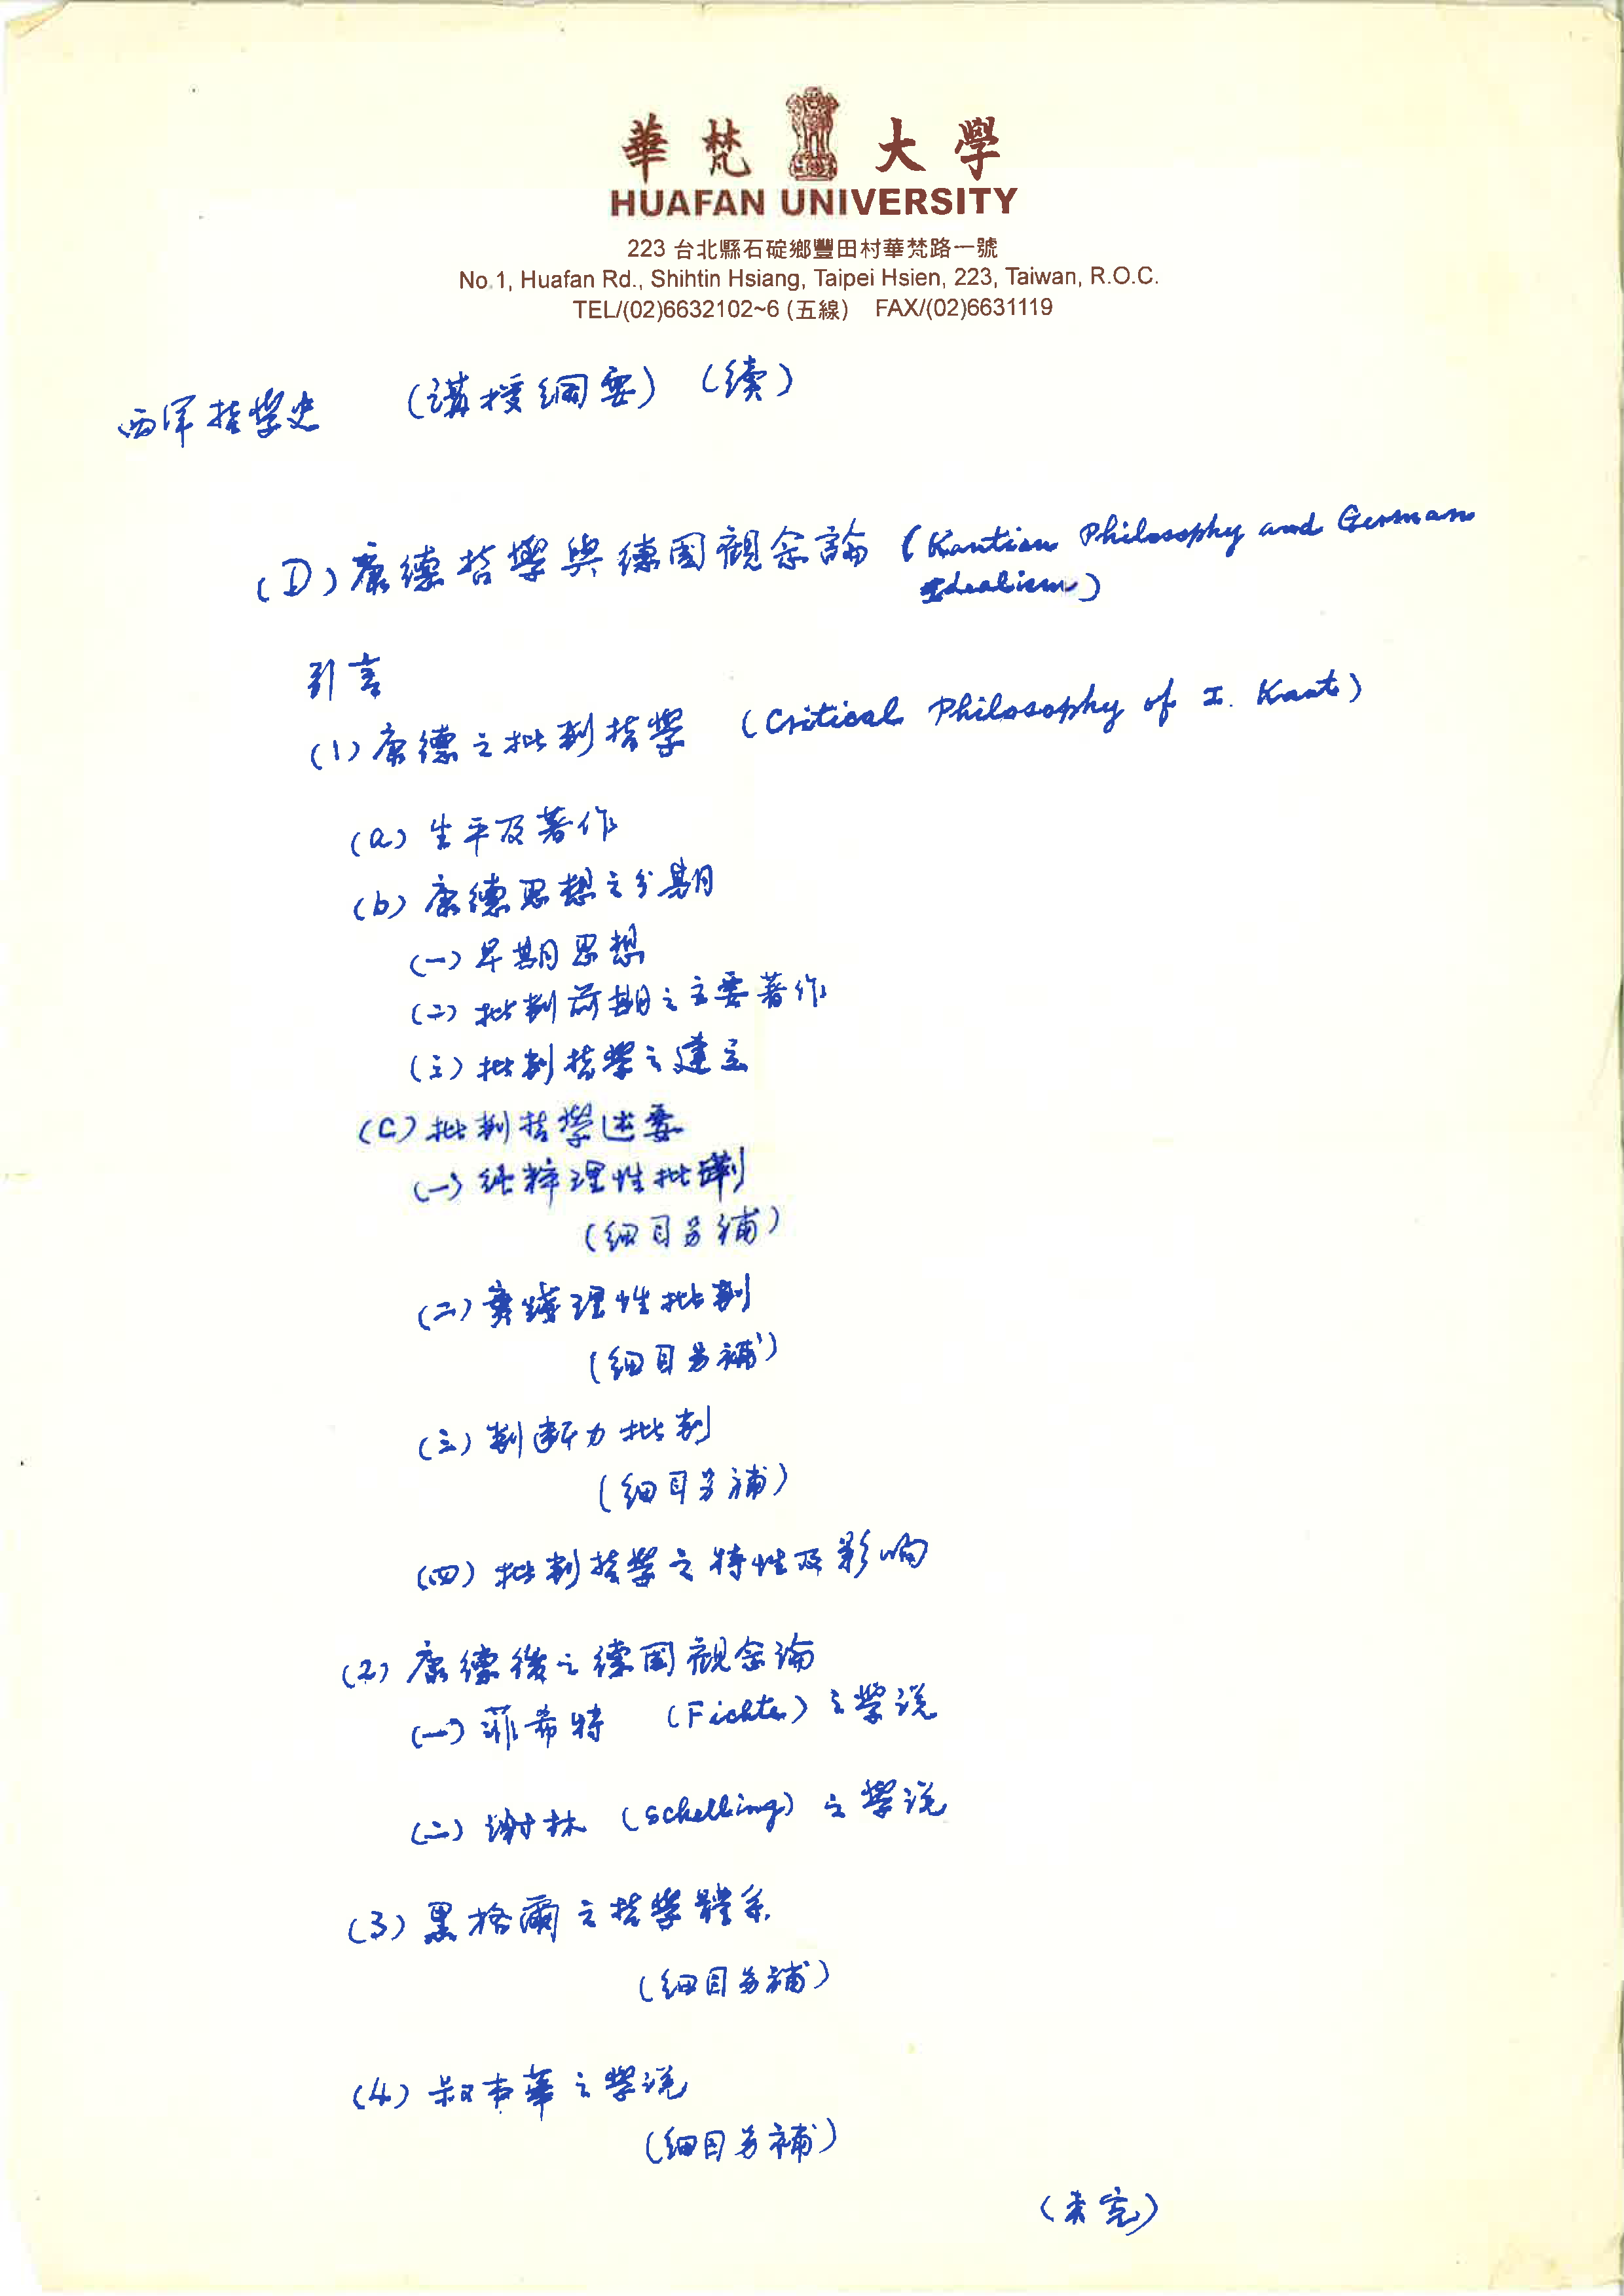 華梵大學
HUAFAN UNIVERSITY
223 台北縣石碇鄉豐田村華梵路一號
No.1, Huafan Rd., Shihtin Hsiang, Taipei Hsien, 223, Taiwan, R.O.C.
TEL/(02)6632102~6 (五線) FAX/(02)6631119
西洋哲學史 (講授綱要) (續)
(D) 康德哲學與德國觀念論 (Kantian Philosophy and German
Idealism)
引言
(1) 康德之批判哲學 (Critical Philosophy of I. Kant)
(a) 生平及著作
(b) 康德思想之分期
(一) 早期思想
(二) 批判前期之主要著作
(三) 批判哲學之建立
(C) 批判哲學述要
(一) 純粹理性批判
(細目另補)
(二) 實踐理性批判
(細目另補)
(三) 判斷力批判
(細目另補)
(四) 批判哲學之特性及影响
(2) 康德後之德国觀念論
(一) 菲希特 (Fichte) 之學说
(二) 謝林 (Schelling) 之學说
(3) 黑格爾之哲學體系
(細目另補)
(4) 叔本華之學说
(細目另補)
(未完)